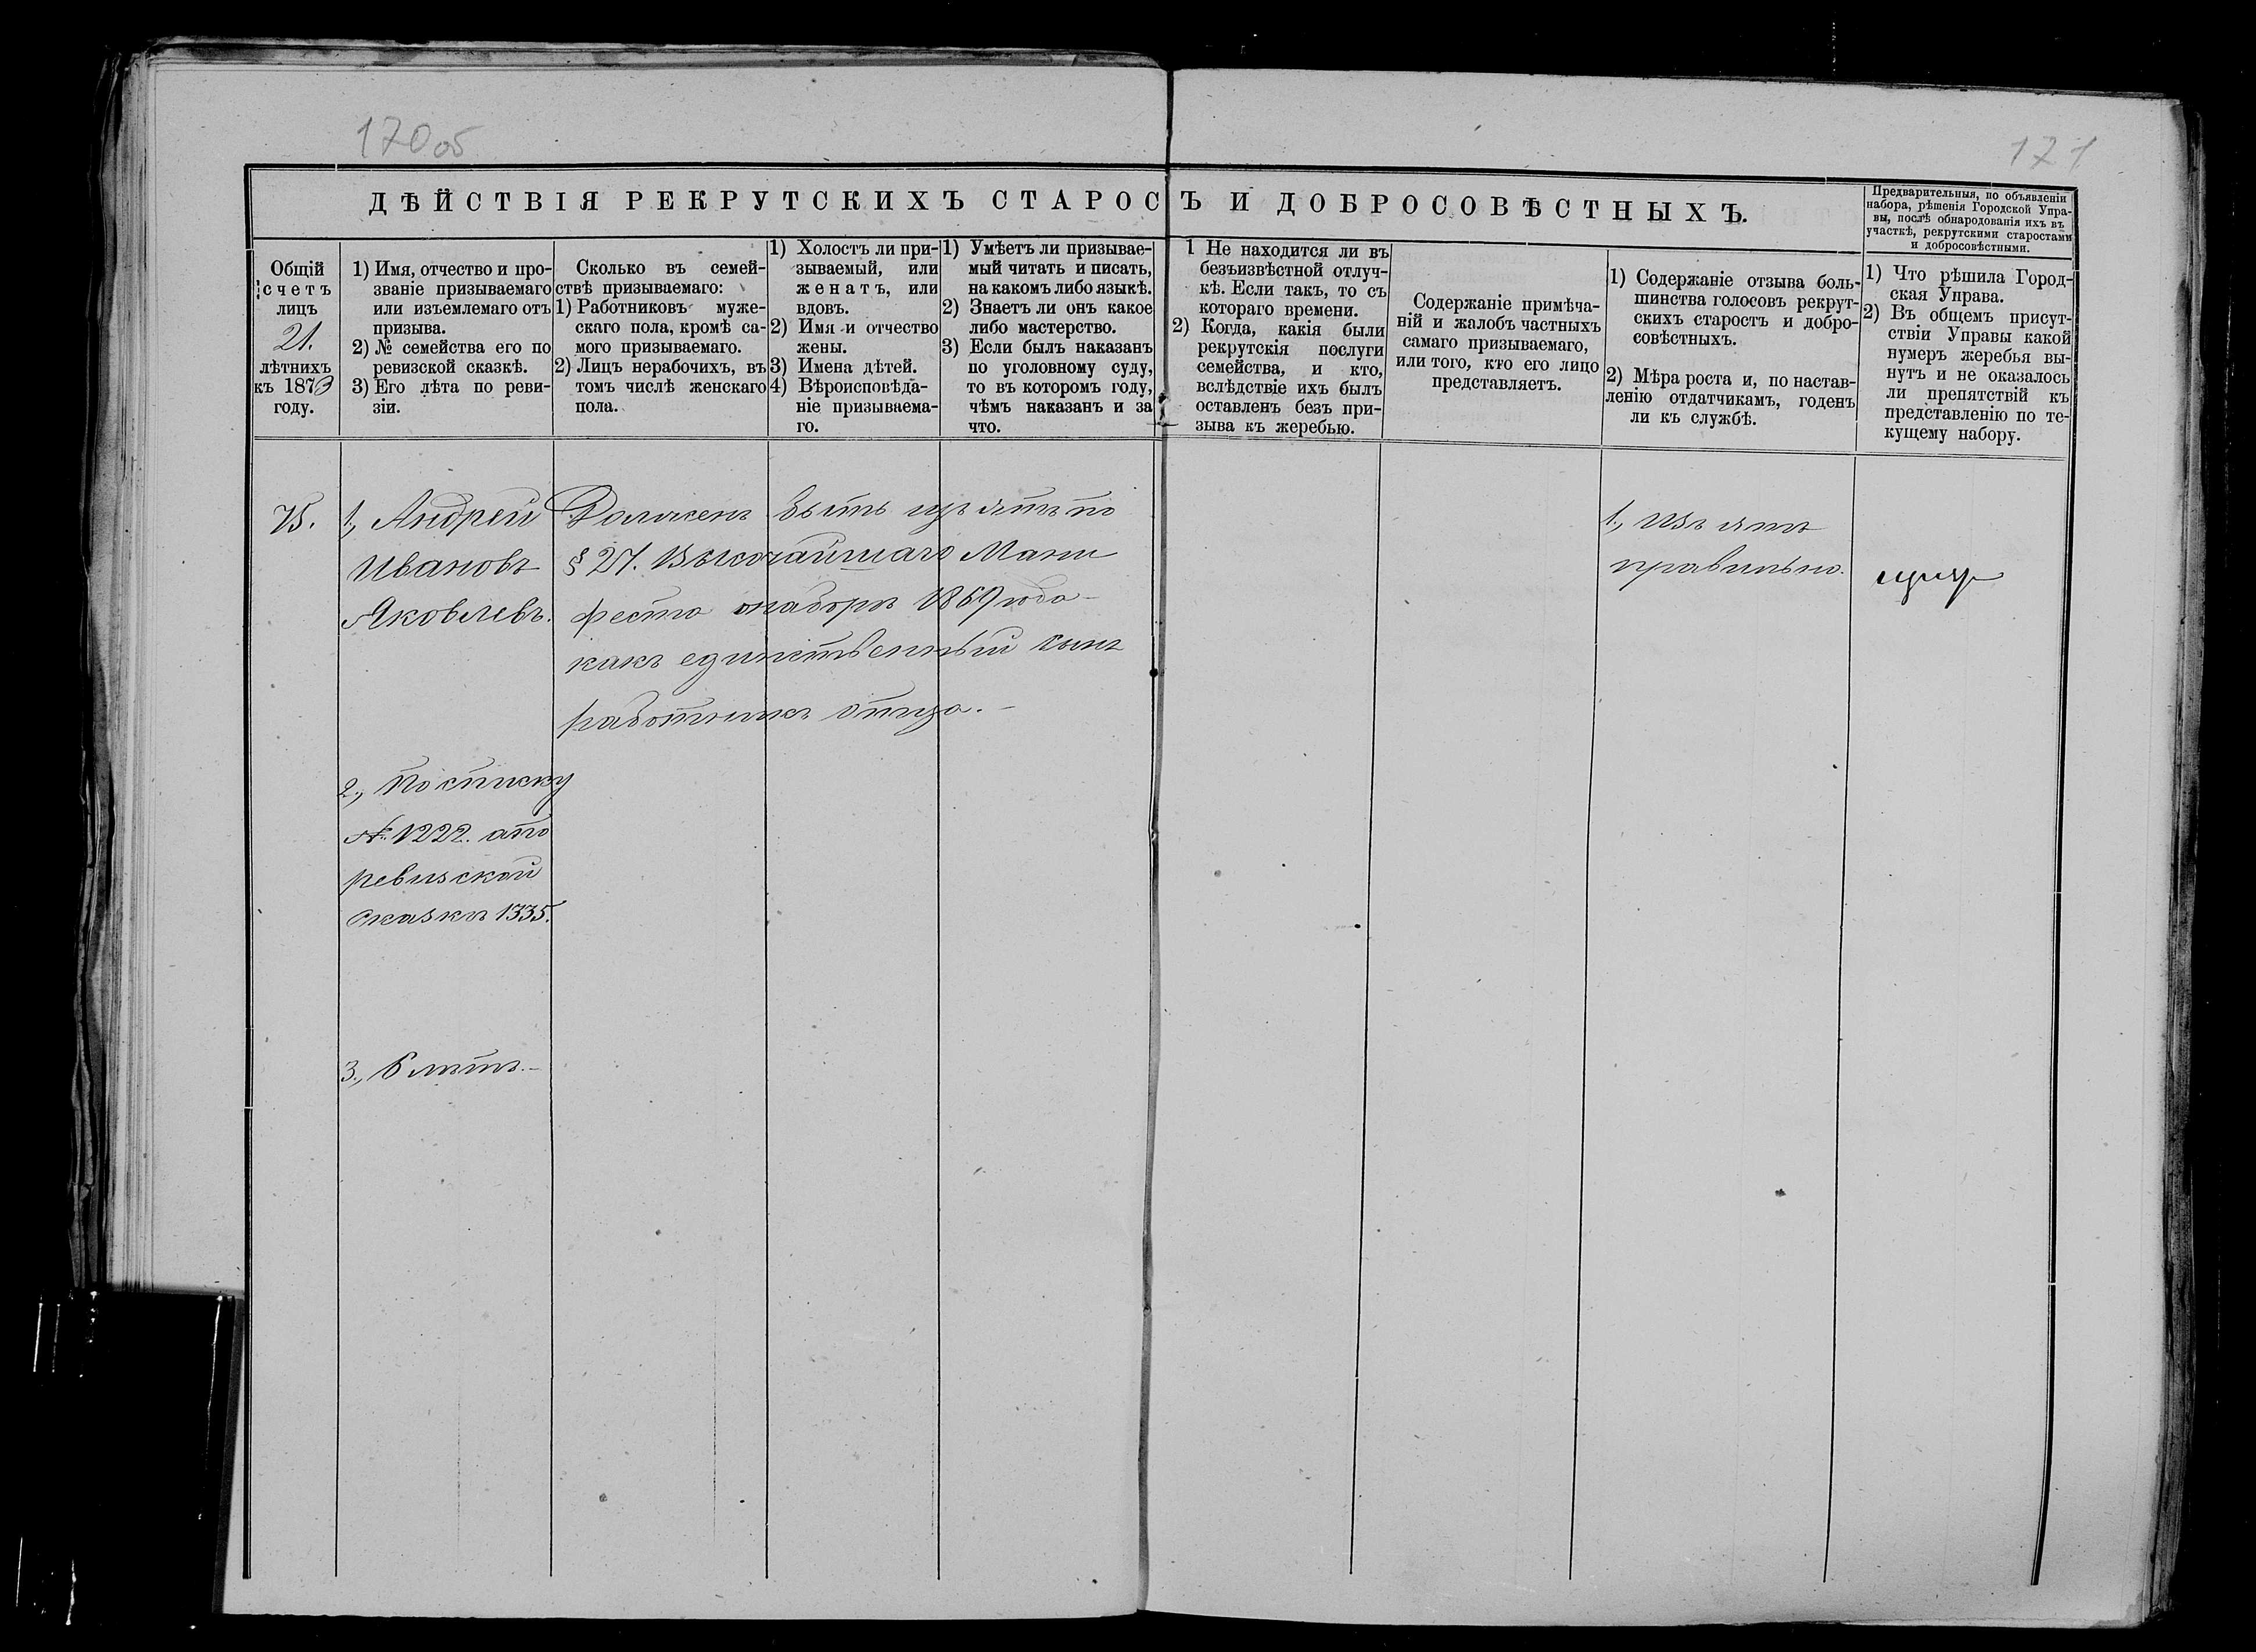 170 об
171
ДѢЙСТВІЯ РЕКРУТСКИХЪ СТАРОСТЪ И ДОБРОСОВѢСТНЫХЪ.
Предварительныя, по объявленіи
набора, рѣшенія Городской Упра-
вы, послѣ обнародованія ихъ въ
участкѣ, рекрутскими старостами
и добросовѣстными.
Общій
счетъ
лицъ
21.
лѣтнихъ
къ 1873
году.
1) Имя, отчество и про-
званіе призываемаго
или изъемлемаго отъ
призыва.
2) № семейства его по
ревизской сказкѣ.
3) Его лѣта по реви-
зіи.
Сколько въ семей-
ствѣ призываемаго:
1) Работниковъ муже-
скаго пола, кромѣ са-
мого призываемаго.
2) Лицъ нерабочихъ, въ
томъ числѣ женскаго
пола.
1) Холостъ ли при-
зываемый, или
женатъ, или
вдовъ.
2) Имя и отчество
жены.
3) Имена дѣтей.
4) Вѣроисповѣда-
ніе призываема-
го.
1) Умѣетъ ли призывае-
мый читать и писать,
на какомъ либо языкѣ.
2) Знаетъ ли онъ какое
либо мастерство.
3) Если былъ наказанъ
по уголовному суду,
то въ которомъ году,
чѣмъ наказанъ и за
что.
1 Не находится ли въ
безъизвѣстной отлуч-
кѣ. Если такъ, то съ
котораго времени.
2) Когда, какія были
рекрутскія послуги
семейства, и кто,
вслѣдствіе ихъ былъ
оставленъ безъ при-
зыва къ жеребью.
Содержаніе примѣча-
ній и жалобъ частныхъ
самаго призываемаго,
или того, кто его лицо
представляетъ.
1) Содержаніе отзыва боль-
шинства голосовъ рекрут-
скихъ старостъ и добро-
совѣстныхъ.
2) Мѣра роста и, по настав-
ленію отдатчикамъ, годенъ
ли къ службѣ.
1) Что рѣшила Город-
ская Управа.
2) Въ общемъ присут-
ствіи Управы какой
нумеръ жеребья вы-
нутъ и не оказалось
ли препятствій къ
представленію по те-
кущему набору.
75.
1., Андрей
Ивановъ
Яковлевъ.
Долженъ быть изъятъ по
§ 27. Высочайшаго Мани
феста о наборѣ 1869 года
какъ единственный сынъ
работникъ отца. –
1., Изъятъ
правильно.
2., По списку
№ 1222. а по
ревизской
сказкѣ 1335.
3., 6 лѣтъ. –